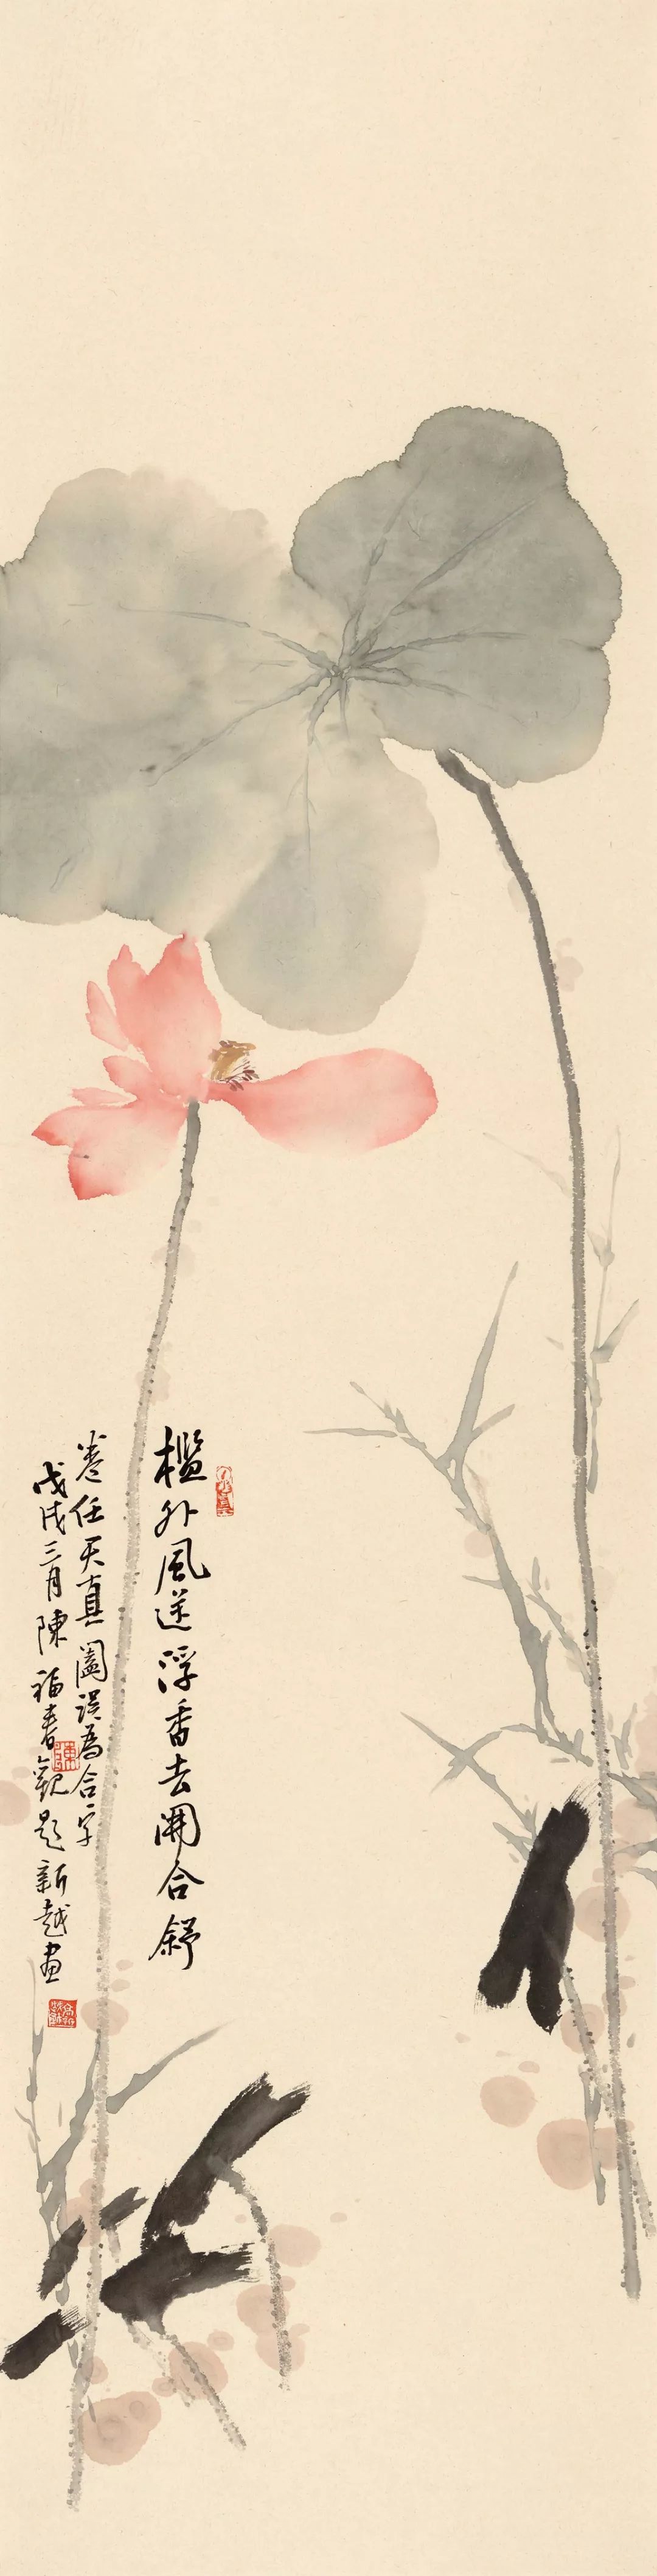 檻外風送浮香去開合舒
卷任天真闔誤為合字
戊戌三月陳福春觀題新越畫
陳